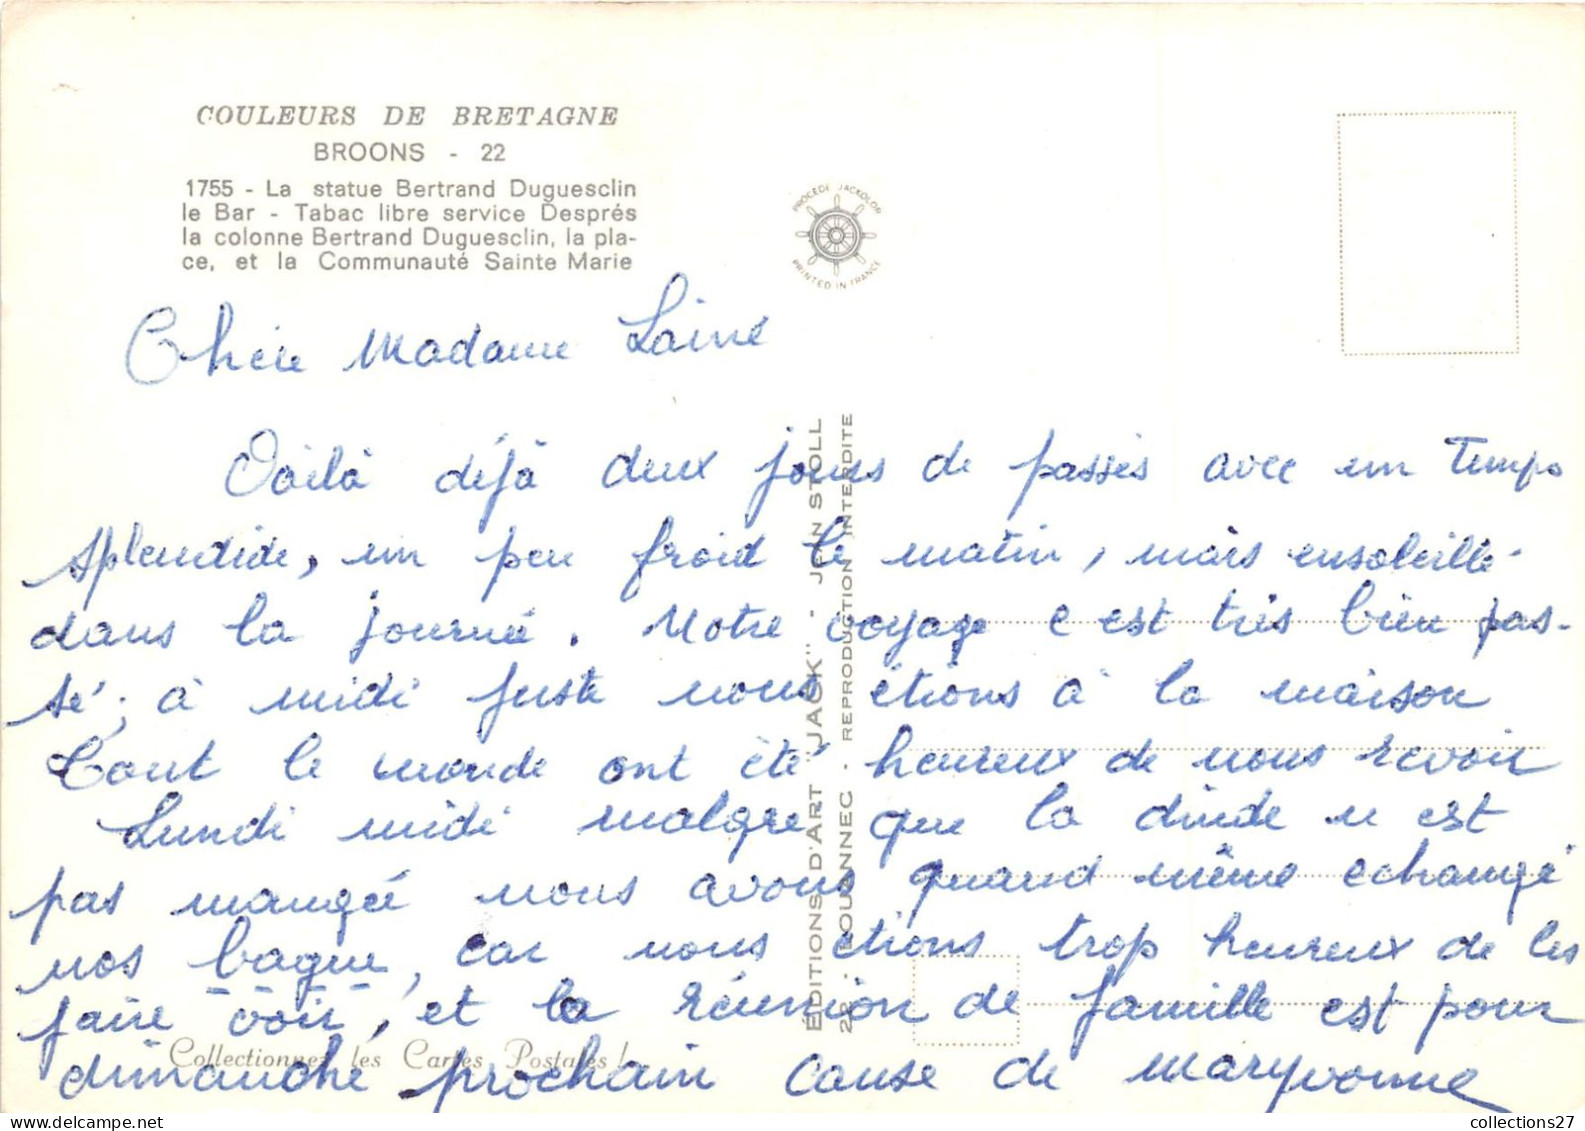 COULEURS DE BRETAGNE
BROONS - 22
1755 - La statue Bertrand Duguesclin
le Bar - Tabac libre service Després
la colonne Bertrand Duguesclin, la pla-
ce, et la Communauté Sainte Marie
PROCÉDÉ JACKOLOR
PRINTED IN FRANCE
Chère Madame Lainé
Voilà déjà deux jours de passés avec un Temps
splendide, un peu froid le matin, mais ensoleillé
dans la journée. Notre voyage c est très bien pas-
sé; à midi juste nous étions à la maison
Tout le monde ont été heureux de nous revoir
Lundi midi malgre que la dinde n est
pas mangée nous avons quand même echangé
nos bague, car nous etions trop heureux de les
faire voir, et la réunion de famille est pour
dimanche prochain cause de Maryvonne
Collectionnez les Cartes Postales !
ÉDITIONS D'ART "JACK" - JEAN STOLL
22 - LOUANNEC - REPRODUCTION INTERDITE
collections27